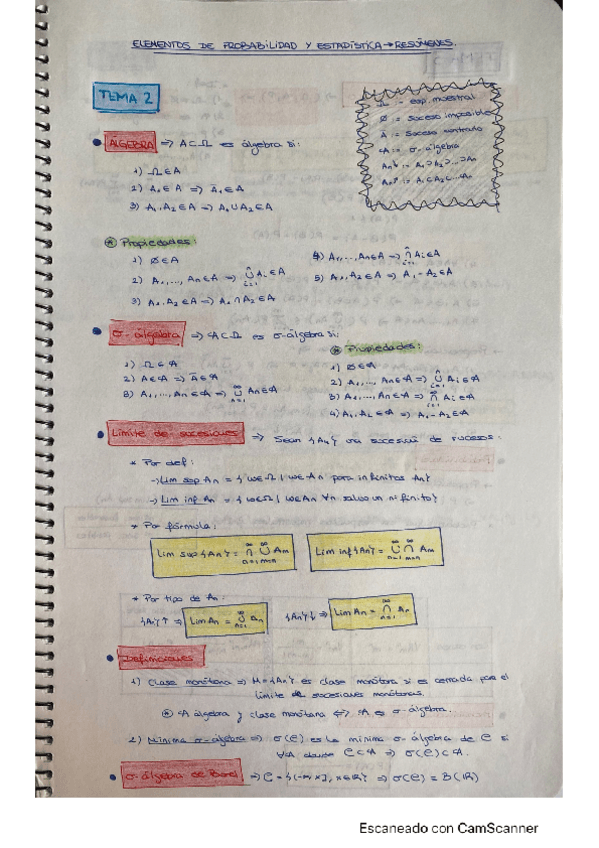 ELEMENTOS DE PROBABILIDAD Y ESTADÍSTICA → RESÚMENES.
TEMA 2
Ω := esp. muestral
Ø := suceso imposible
Ā := suceso contrario
𝒜 := σ-álgebra
An↓ := A₁⊃A₂⊃...⊃An
An↑ := A₁⊂A₂⊂...⊂An
• ÁLGEBRA => A⊂Ω es álgebra si:
1) Ω∈A
2) A₁∈A => Ā₁∈A
3) A₁,A₂∈A => A₁∪A₂∈A
* Propiedades:
1) Ø∈A
2) A₁,..., An∈A => ⋃ⁿᵢ₌₁ Ai∈A
3) A₁,A₂∈A => A₁∩A₂∈A
4) A₁,..., An∈A => ⋂ⁿᵢ₌₁ Ai∈A
5) A₁,A₂∈A => A₁-A₂∈A
• σ-álgebra => 𝒜⊂Ω es σ-álgebra si:
1) Ω∈𝒜
2) A∈𝒜 => Ā∈𝒜
3) A₁,..., An∈𝒜 => ⋃^∞ₙ₌₁ An∈𝒜
* Propiedades:
1) Ø∈𝒜
2) A₁,..., An∈𝒜 => ⋃ⁿᵢ₌₁ Ai∈𝒜
3) A₁,..., An∈𝒜 => ⋂ⁿᵢ₌₁ Ai∈𝒜
4) A₁,A₂∈𝒜 => A₁-A₂∈𝒜
• Límite de sucesiones => Sean {An} una sucesión de sucesos:
* Por def:
→ Lim sup An = {ω∈Ω | ω∈An para infinitos An}
→ Lim inf An = {ω∈Ω | ω∈An ∀n salvo un nº finito}
* Por fórmula:
Lim sup{An} = ⋂^∞ₙ₌₁ ⋃^∞ₘ₌ₙ Am
Lim inf{An} = ⋃^∞ₙ₌₁ ⋂^∞ₘ₌ₙ Am
* Por tipo de An:
{An}↑ => Lim An = ⋃^∞ₙ₌₁ an
{An}↓ => Lim An = ⋂^∞ₙ₌₁ An
• Definiciones
1) Clase monótona => M={An} es clase monótona si es cerrada para el
límite de sucesiones monótonas.
* 𝒜 álgebra y clase monótona <=> 𝒜 es σ-álgebra.
2) Mínima σ-álgebra => σ(C) es la mínima σ-álgebra de C si
∀𝒜 donde C⊂𝒜 => σ(C)⊂𝒜.
• σ-álgebra de Borel => C = {(-∞, x], x∈ℝ} => σ(C) = B(ℝ)
Escaneado con CamScanner